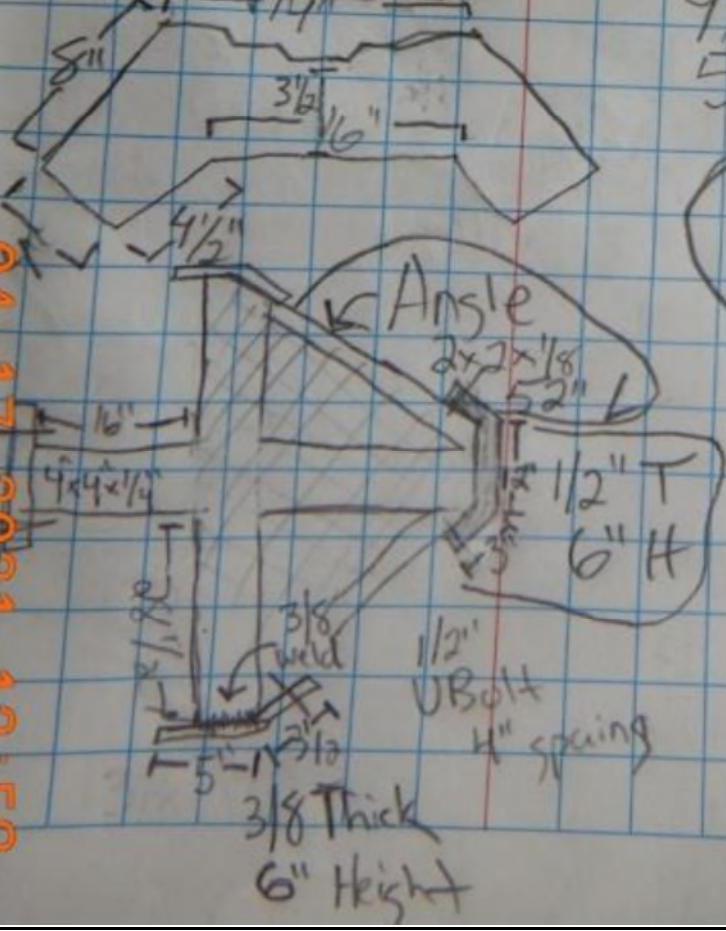 8"
3 1/2
16"
4 1/2"
Angle
2x2x1/8
52"
16"
4"x4"x1/4"
1/2" T
3"
6" H
3/8
weld
1/2"
UBolt
4" spacing
5"
3 1/2
3/8 Thick
6" Height